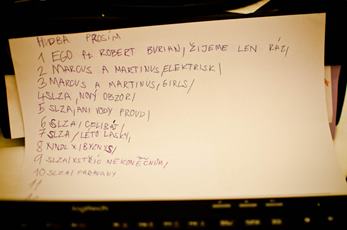 HUDBA PROSÍM
1 EGO ft. ROBERT BURIAN, ŽIJEME LEN RÁZ/
2 MARCUS A MARTINUS/ELEKTRISK/
3 MARCUS A MARTINUS/GIRLS/
4 SLZA, NOVÝ OBZOR/
5 SLZA/ANI VODY PROUD/
6 SLZA/CELIBÁT/
7 SLZA/LÉTO LÁSKY/
8
9 SLZA/KATEŘINA NEKONEČNÁM/
10 SLZA/PARAVANY
11